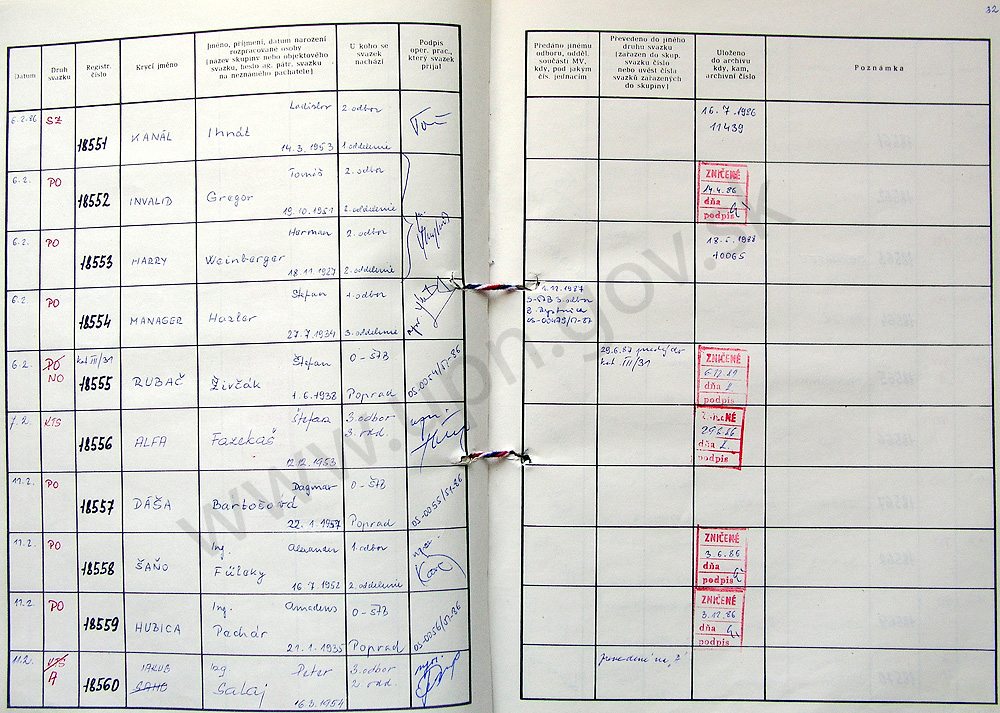 32
Datum
Druh svazku
Registr. číslo
Krycí jméno
Jméno, příjmení, datum narození
rozpracované osoby
(název skupiny nebo objektového
svazku, heslo ag. pátr. svazku
na neznámého pachatele)
U koho se
svazek
nachází
Podpis
oper. prac.,
který svazek
přijal
Předáno jinému
odboru, odděl.
součásti MV,
kdy, pod jakým
čís. jednacím
Převedeno do jiného
druhu svazku
(zařazen do skup.
svazku číslo
nebo uvést čísla
svazků zařazených
do skupiny)
Uloženo
do archivu
kdy, kam,
archivní číslo
Poznámka
6.2.86 SZ 18551 KANÁL Ladislav Ihnát 14.3.1953 2. odbor 1. oddelenie
16.7.1986
11439
6.2. PO 18552 INVALID Tomáš Gregor 19.10.1951 2. odbor 2. oddelenie
ZNIČENÉ
14.4.86
dňa
podpis
6.2. PO 18553 HARRY Herman Weinberger 18.11.1927 2. odbor 2. oddelenie
18.5.1988
10065
6.2. PO 18554 MANAGER Štefan 27.7.1934 1. odbor 3. oddelenie
1.12.1987
B. Bystrica
6.2. PO NO kat III/31 18555 RUBAČ Štefan Živčák 1.6.1938 O-ŠTB Poprad OS-0054/51-86
29.6.87
kat III/31
ZNIČENÉ
dňa
podpis
7.2. KTS 18556 ALFA Štefan Fazekaš 12.12.1953 3. odbor 3. odd.
29.6.86
dňa
podpis
11.2. PO 18557 DÁŠA Dagmar Bartošová 22.1.1957 O-ŠTB Poprad OS-0055/51-86
11.2. PO 18558 ŠAŇO Ing. Alexander Füleky 16.7.1952 1. odbor 2. oddelenie
ZNIČENÉ
3.6.86
dňa
podpis
11.2. PO 18559 HUBICA Ing. Amadeus Pachár 21.1.1935 O-ŠTB Poprad OS-0056/51-86
ZNIČENÉ
3.12.86
dňa
podpis
11.2. A 18560 JAKUB Ing Peter Salaj 1954 3. odbor 2. odd.
prevedené na
www.upn.gov.sk